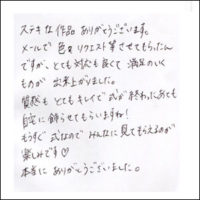 ステキな作品 ありがとうございます。
メールで 色々 リクエスト等させてもらったん
ですが、とても対応も良くて 満足のいく
ものが 出来上がりました。
質感も とても キレイで 式が終わったあとも
自宅に 飾らせてもらいますね!
もうすぐ 式なので みんなに見てもらえるのが
楽しみです♡
本当に ありがとうございました。